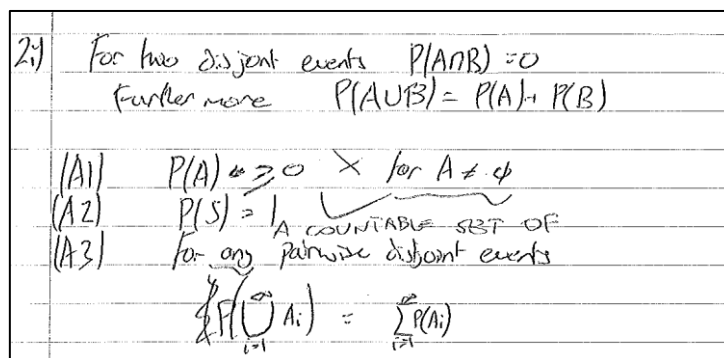 2i) For two disjoint events P(A∩B) = 0
Furthermore P(A∪B) = P(A) + P(B)
(A1) P(A) ≥ 0 × for A ≠ φ
(A2) P(S) = 1
A COUNTABLE SET OF
(A3) For any pairwise disjoint events
P(⋃_{i=1}^{∞} A_i) = ∑_{i=1}^{∞} P(A_i)